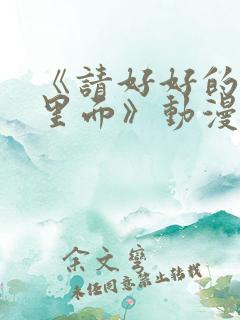 《請好好的
里面》動漫
余文鸞
未经同意禁止转载